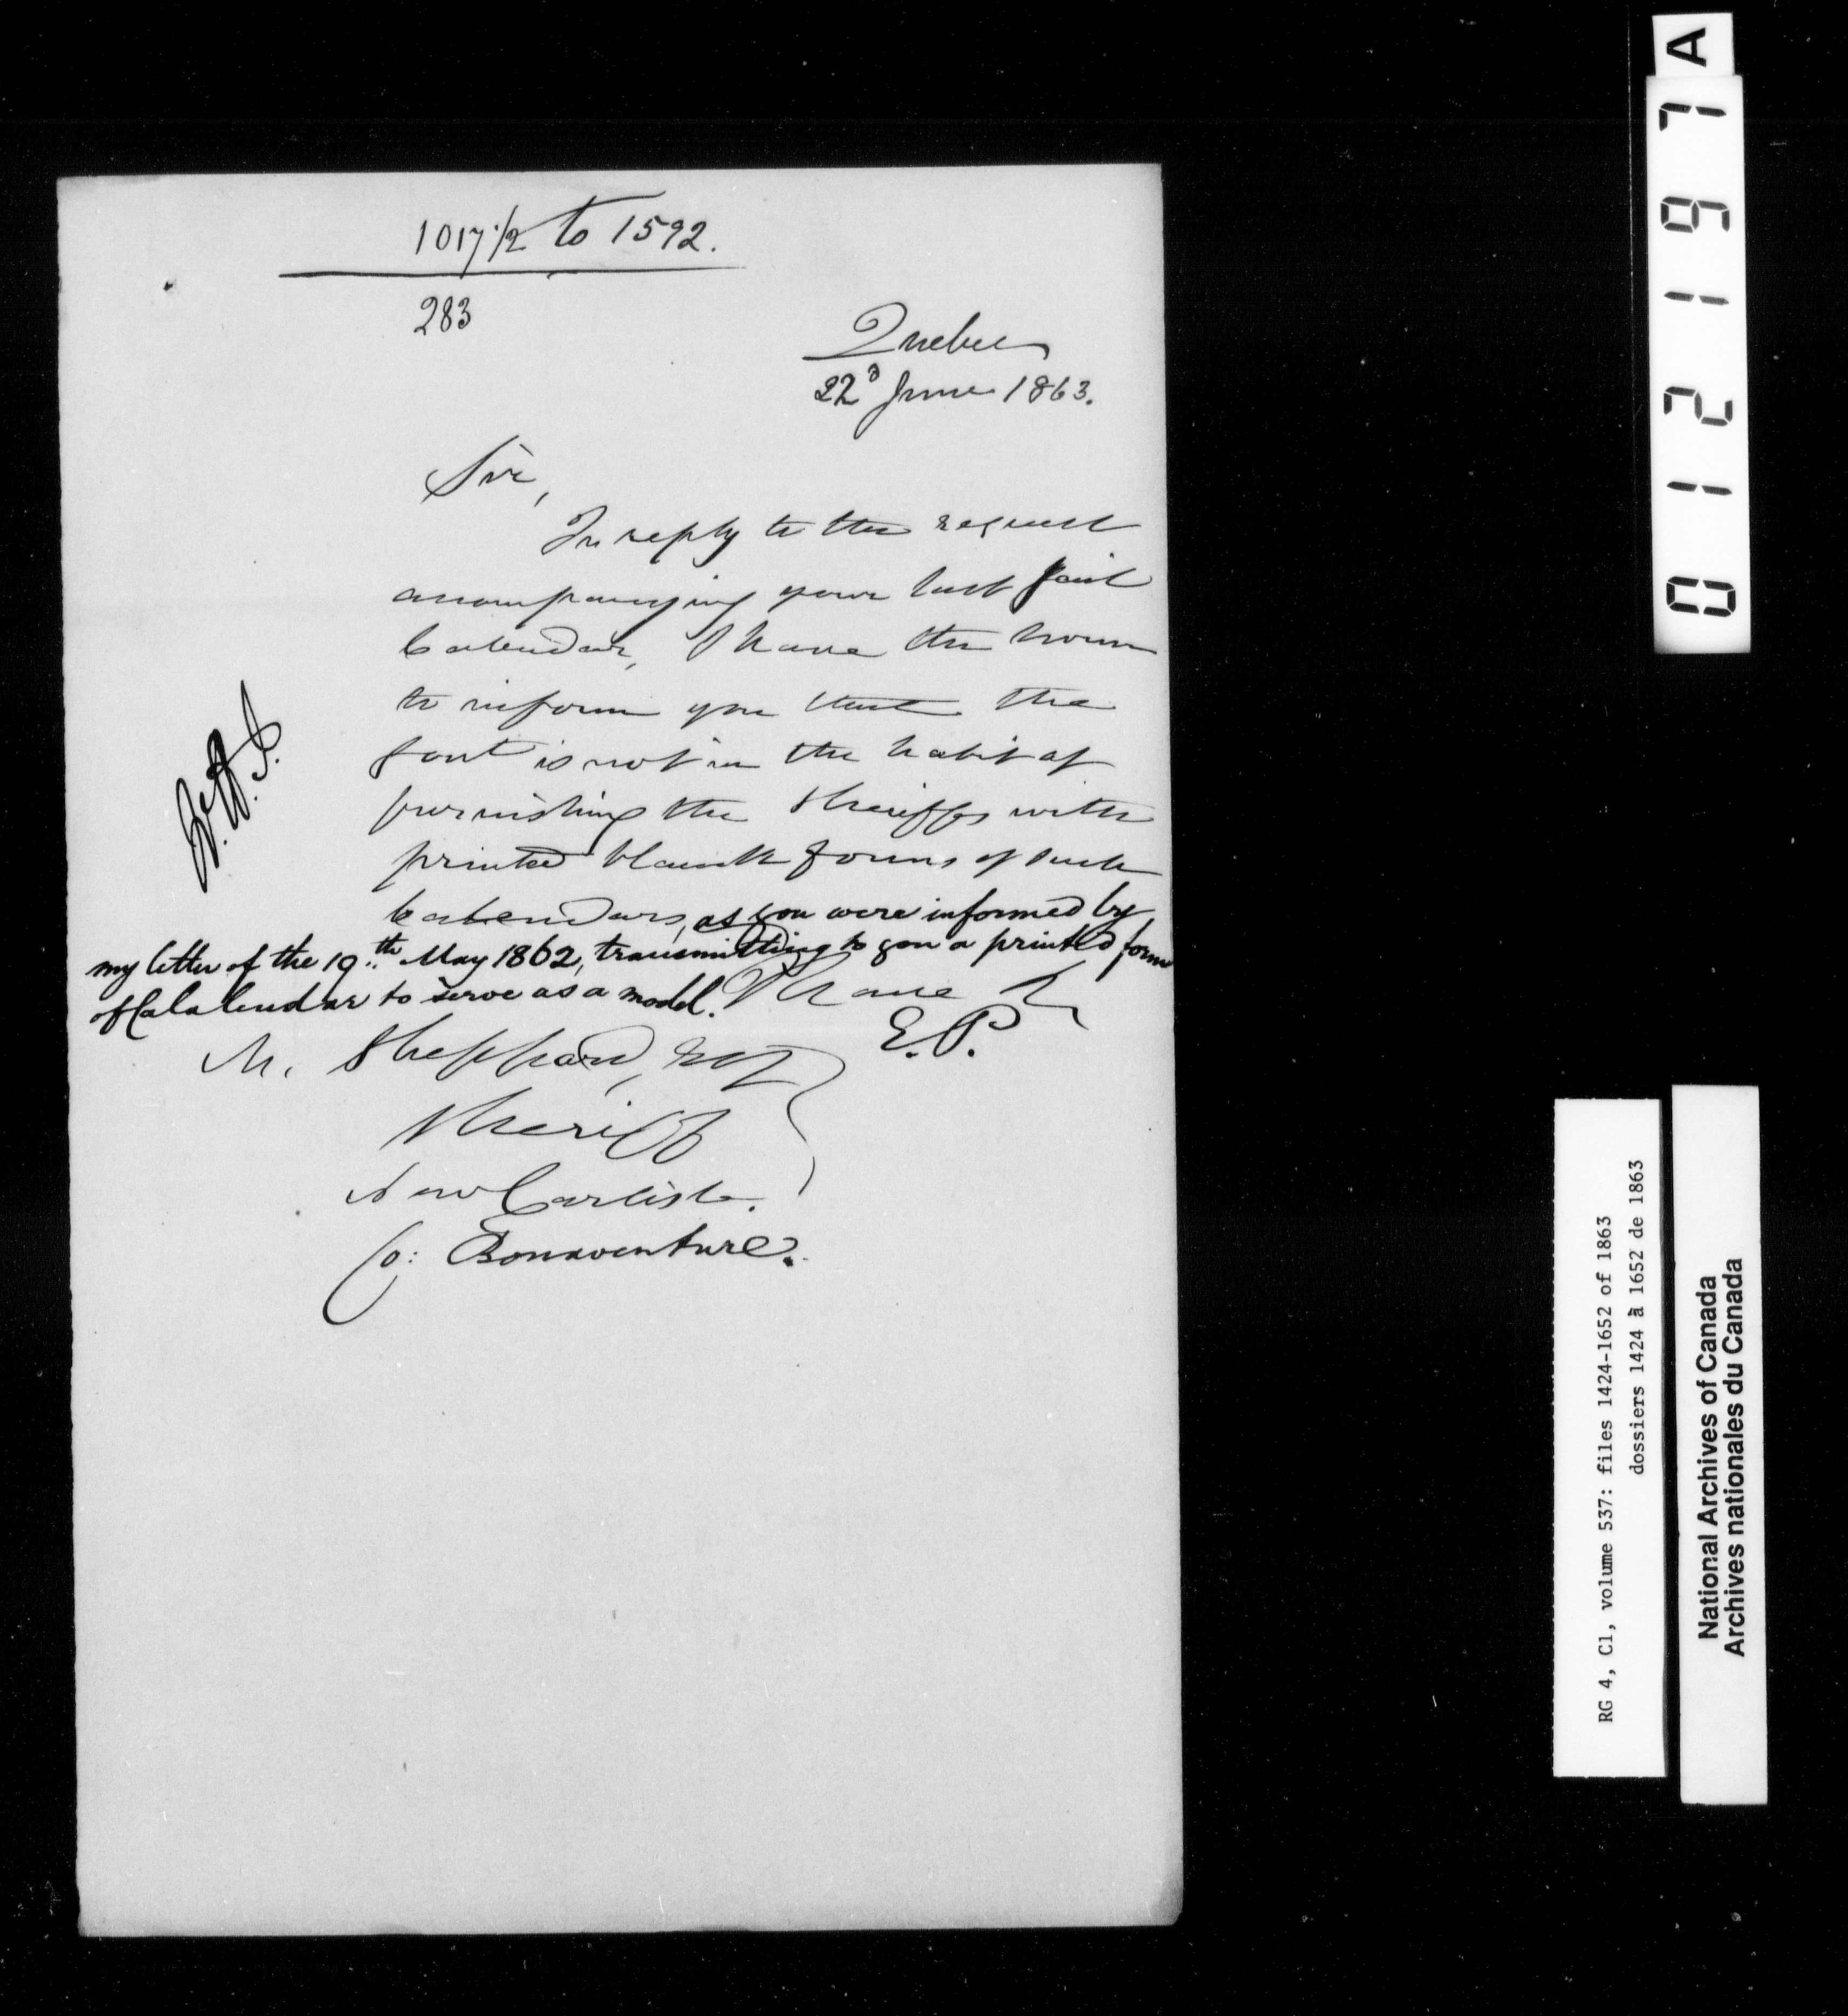 1017 1/2 to 1592.
283
Quebec
22d June 1863.
Sir,
In reply to the request
accompanying your last Jail
Calendar, I have the honor
to inform you that the
Govt is not in the habit of
furnishing the Sheriffs with
printed blank forms of such
Calendars, as you were informed by
my letter of the 19th May 1862, transmitting to you a printed form
of Calalendar to serve as a model. I have
E.P.
M. Sheppard, Esq
Sheriff
New Carlisle.
Co: Bonaventure.
0 1 2 1 9 7 A
RG 4, C1, volume 537: files 1424-1652 of 1863
dossiers 1424 à 1652 de 1863
National Archives of Canada
Archives nationales du Canada